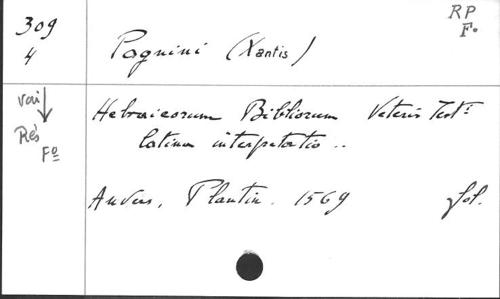 RP
F.
309
4
Pagnini (Xantis)
voir
Rés
Fº
Hebraicorum Bibliorum Veteris Testⁱ
latina interpretatio ..
Anvers, Plantin. 1569 fol.